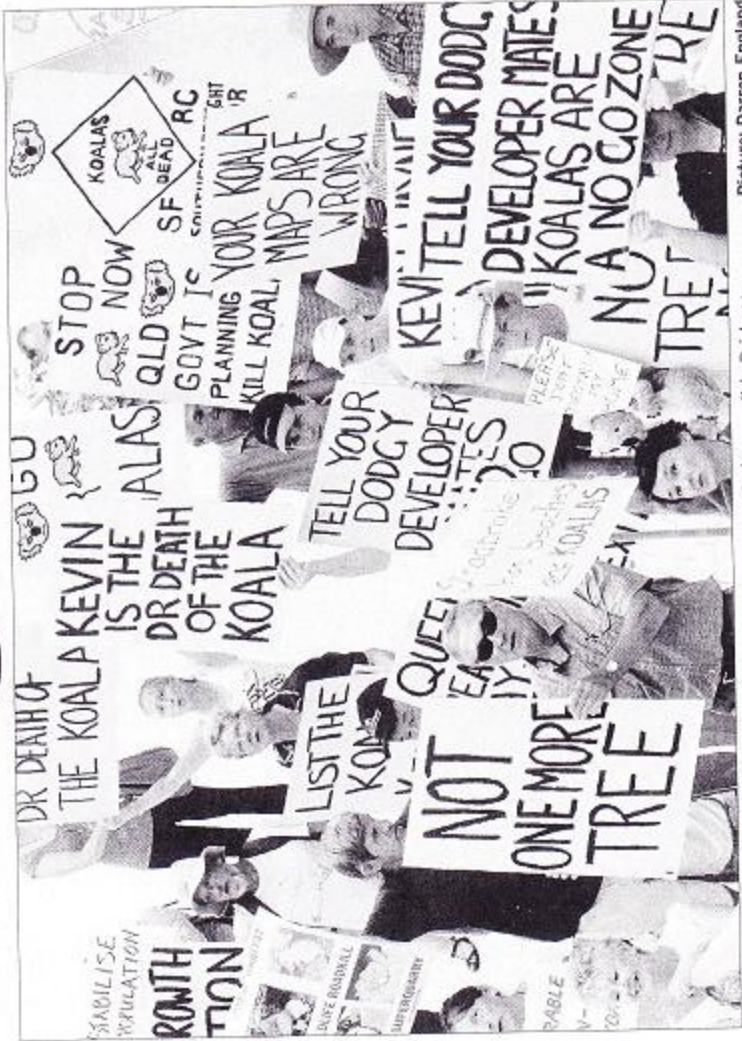 DR DEATH OF
THE KOALA
KEVIN
IS THE
DR DEATH
OF THE
KOALA
GO
ALAS
STOP
NOW
QLD
GOVT IS
PLANNING
KILL KOAL
KOALAS
ALL
DEAD
SF RC
YOUR KOALA
MAPS ARE
WRONG
KEVI
TELL YOUR DODGY
DEVELOPER MATES
KOALAS ARE
A NO GO ZONE
NO
TREE
RE
TELL YOUR
DODGY
DEVELOPER
MATES
GO
PLEASE
DON'T
MY
HOME
KOALAS
QUEE
LIST THE
KOA
NOT
ONE MORE
TREE
STABILISE
POPULATION
ROWTH
TION
LIFE ROADKILL
SUPERQUARRY
RABLE
Picture: Darren England